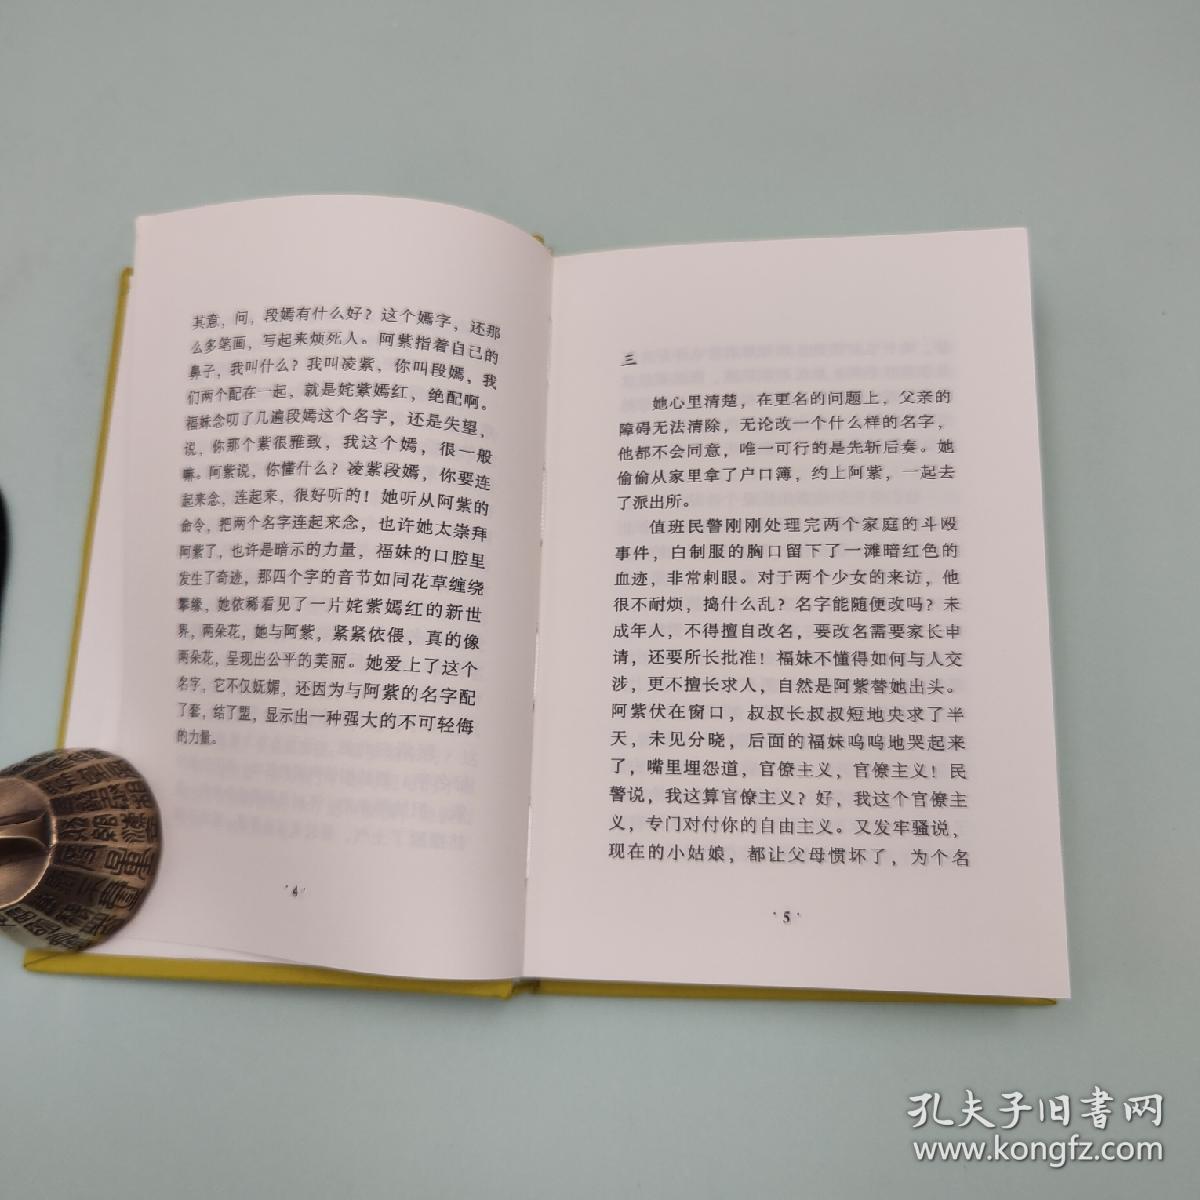 其意，问，段嫣有什么好？这个嫣字，还那
么多笔画，写起来烦死人。阿紫指着自己的
鼻子，我叫什么？我叫凌紫，你叫段嫣，我
们两个配在一起，就是姹紫嫣红，绝配啊。
福妹念叨了几遍段嫣这个名字，还是失望，
说，你那个紫很雅致，我这个嫣，很一般
嘛。阿紫说，你懂什么？凌紫段嫣，你要连
起来念，连起来，很好听的！她听从阿紫的
命令，把两个名字连起来念，也许她太崇拜
阿紫了，也许是暗示的力量，福妹的口腔里
发生了奇迹，那四个字的音节如同花草缠绕
攀缘，她依稀看见了一片姹紫嫣红的新世
界，两朵花，她与阿紫，紧紧依偎，真的像
两朵花，呈现出公平的美丽。她爱上了这个
名字，它不仅妩媚，还因为与阿紫的名字配
了套，结了盟，显示出一种强大的不可轻侮
的力量。
4
三
她心里清楚，在更名的问题上，父亲的
障碍无法清除，无论改一个什么样的名字，
他都不会同意，唯一可行的是先斩后奏。她
偷偷从家里拿了户口簿，约上阿紫，一起去
了派出所。
值班民警刚刚处理完两个家庭的斗殴
事件，白制服的胸口留下了一滩暗红色的
血迹，非常刺眼。对于两个少女的来访，他
很不耐烦，捣什么乱？名字能随便改吗？未
成年人，不得擅自改名，要改名需要家长申
请，还要所长批准！福妹不懂得如何与人交
涉，更不擅长求人，自然是阿紫替她出头。
阿紫伏在窗口，叔叔长叔叔短地央求了半
天，未见分晓，后面的福妹呜呜地哭起来
了，嘴里埋怨道，官僚主义，官僚主义！民
警说，我这算官僚主义？好，我这个官僚主
义，专门对付你的自由主义。又发牢骚说，
现在的小姑娘，都让父母惯坏了，为个名
5
孔夫子旧书网
www.kongfz.com